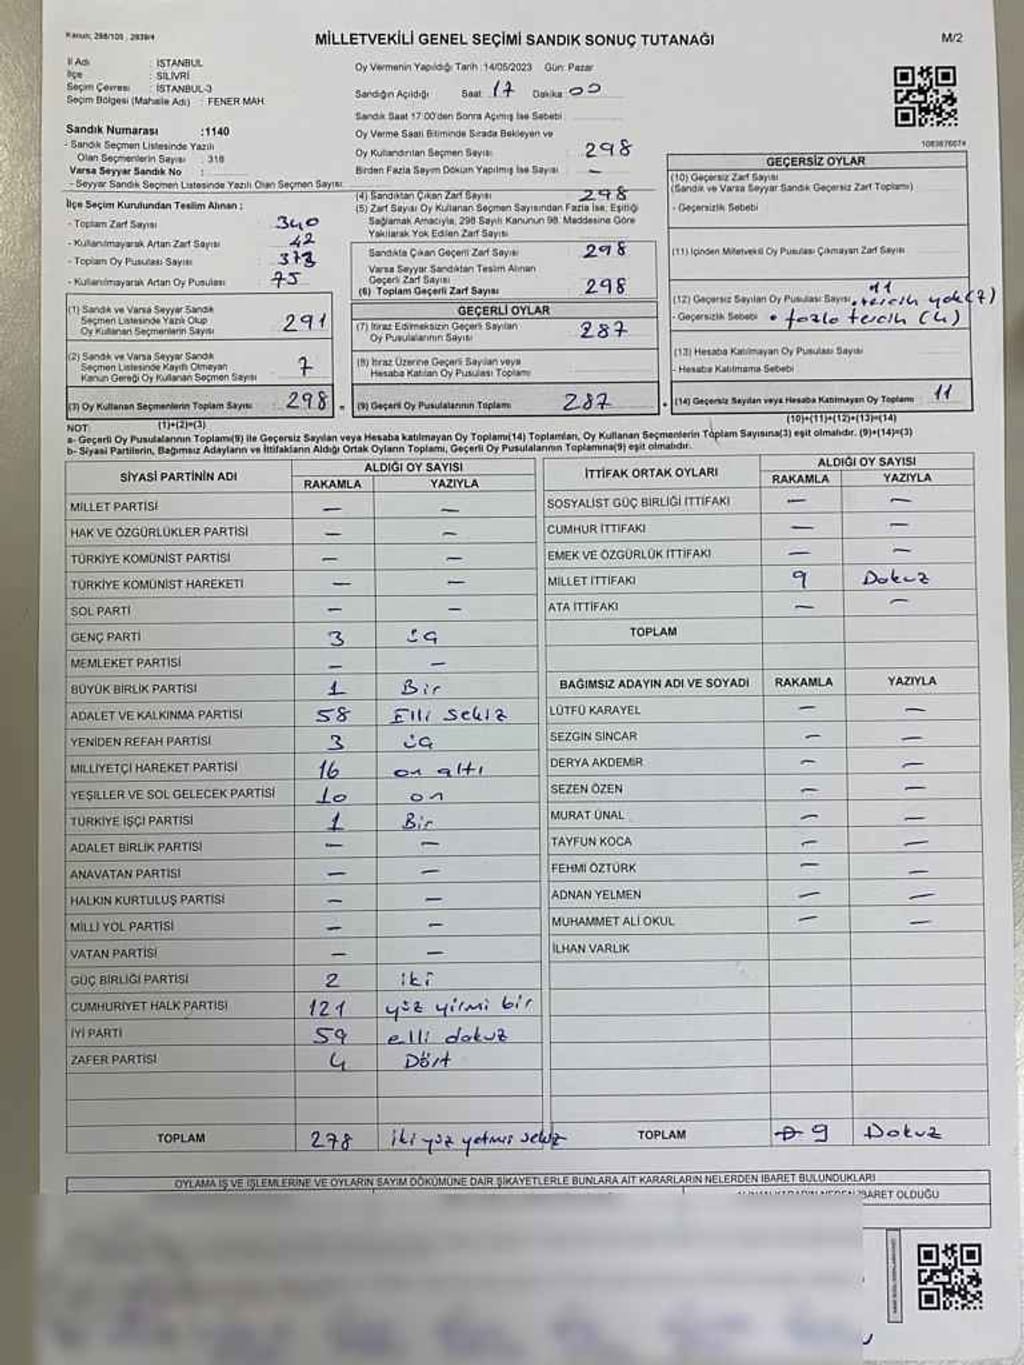 Kanun; 298/105 , 2839/4
MİLLETVEKİLİ GENEL SEÇİMİ SANDIK SONUÇ TUTANAĞI
M/2
İl Adı : İSTANBUL
İlçe : SİLİVRİ
Seçim Çevresi : İSTANBUL-3
Seçim Bölgesi (Mahalle Adı) : FENER MAH.
Sandık Numarası :1140
- Sandık Seçmen Listesinde Yazılı
Olan Seçmenlerin Sayısı : 318
Varsa Seyyar Sandık No :
- Seyyar Sandık Seçmen Listesinde Yazılı Olan Seçmen Sayısı:
İlçe Seçim Kurulundan Teslim Alınan :
- Toplam Zarf Sayısı 340
- Kullanılmayarak Artan Zarf Sayısı 42
- Toplam Oy Pusulası Sayısı 373
- Kullanılmayarak Artan Oy Pusulası 75
(1) Sandık ve Varsa Seyyar Sandık
Seçmen Listesinde Yazılı Olup
Oy Kullanan Seçmenlerin Sayısı 291
(2) Sandık ve Varsa Seyyar Sandık
Seçmen Listesinde Kayıtlı Olmayan
Kanun Gereği Oy Kullanan Seçmen Sayısı 7
(3) Oy Kullanan Seçmenlerin Toplam Sayısı 298
(1)+(2)=(3)
Oy Vermenin Yapıldığı Tarih :14/05/2023 Gün: Pazar
Sandığın Açıldığı Saat: 17 Dakika: 00
Sandık Saat 17:00'den Sonra Açılmış İse Sebebi
Oy Verme Saati Bitiminde Sırada Bekleyen ve
Oy Kullandırılan Seçmen Sayısı 298
Birden Fazla Sayım Döküm Yapılmış İse Sayısı —
(4) Sandıktan Çıkan Zarf Sayısı 298
(5) Zarf Sayısı Oy Kullanan Seçmen Sayısından Fazla İse, Eşitliği
Sağlamak Amacıyla, 298 Sayılı Kanunun 98. Maddesine Göre
Yakılarak Yok Edilen Zarf Sayısı
Sandıkta Çıkan Geçerli Zarf Sayısı 298
Varsa Seyyar Sandıktan Teslim Alınan
Geçerli Zarf Sayısı
(6) Toplam Geçerli Zarf Sayısı 298
GEÇERLİ OYLAR
(7) İtiraz Edilmeksizin Geçerli Sayılan
Oy Pusulalarının Sayısı 287
(8) İtiraz Üzerine Geçerli Sayılan veya
Hesaba Katılan Oy Pusulası Toplamı
(9) Geçerli Oy Pusulalarının Toplamı 287
GEÇERSİZ OYLAR
(10) Geçersiz Zarf Sayısı
(Sandık ve Varsa Seyyar Sandık Geçersiz Zarf Toplamı)
- Geçersizlik Sebebi
(11) İçinden Milletvekili Oy Pusulası Çıkmayan Zarf Sayısı
11
(12) Geçersiz Sayılan Oy Pusulası Sayısı • tercih yok (7)
- Geçersizlik Sebebi • fazla tercih (4)
(13) Hesaba Katılmayan Oy Pusulası Sayısı
- Hesaba Katılmama Sebebi
(14) Geçersiz Sayılan veya Hesaba Katılmayan Oy Toplamı 11
(10)+(11)+(12)+(13)=(14)
NOT:
a- Geçerli Oy Pusulalarının Toplamı(9) ile Geçersiz Sayılan veya Hesaba katılmayan Oy Toplamı(14) Toplamları, Oy Kullanan Seçmenlerin Toplam Sayısına(3) eşit olmalıdır. (9)+(14)=(3)
b- Siyasi Partilerin, Bağımsız Adayların ve İttifakların Aldığı Ortak Oyların Toplamı, Geçerli Oy Pusulalarının Toplamına(9) eşit olmalıdır.
SİYASİ PARTİNİN ADI ALDIĞI OY SAYISI
RAKAMLA YAZIYLA
MİLLET PARTİSİ — —
HAK VE ÖZGÜRLÜKLER PARTİSİ — —
TÜRKİYE KOMÜNİST PARTİSİ — —
TÜRKİYE KOMÜNİST HAREKETİ — —
SOL PARTİ — —
GENÇ PARTİ 3 üç
MEMLEKET PARTİSİ — —
BÜYÜK BİRLİK PARTİSİ 1 Bir
ADALET VE KALKINMA PARTİSİ 58 Elli sekiz
YENİDEN REFAH PARTİSİ 3 üç
MİLLİYETÇİ HAREKET PARTİSİ 16 on altı
YEŞİLLER VE SOL GELECEK PARTİSİ 10 on
TÜRKİYE İŞÇİ PARTİSİ 1 Bir
ADALET BİRLİK PARTİSİ — —
ANAVATAN PARTİSİ — —
HALKIN KURTULUŞ PARTİSİ — —
MİLLİ YOL PARTİSİ — —
VATAN PARTİSİ — —
GÜÇ BİRLİĞİ PARTİSİ 2 iki
CUMHURİYET HALK PARTİSİ 121 yüz yirmi bir
İYİ PARTİ 59 elli dokuz
ZAFER PARTİSİ 4 Dört
TOPLAM 278 iki yüz yetmiş sekiz
İTTİFAK ORTAK OYLARI ALDIĞI OY SAYISI
RAKAMLA YAZIYLA
SOSYALİST GÜÇ BİRLİĞİ İTTİFAKI — —
CUMHUR İTTİFAKI — —
EMEK VE ÖZGÜRLÜK İTTİFAKI — —
MİLLET İTTİFAKI 9 Dokuz
ATA İTTİFAKI — —
TOPLAM
BAĞIMSIZ ADAYIN ADI VE SOYADI RAKAMLA YAZIYLA
LÜTFÜ KARAYEL — —
SEZGİN SİNCAR — —
DERYA AKDEMİR — —
SEZEN ÖZEN — —
MURAT ÜNAL — —
TAYFUN KOCA — —
FEHMİ ÖZTÜRK — —
ADNAN YELMEN — —
MUHAMMET ALİ OKUL — —
İLHAN VARLIK
TOPLAM 9 Dokuz
OYLAMA İŞ VE İŞLEMLERİNE VE OYLARIN SAYIM DÖKÜMÜNE DAİR ŞİKAYETLERLE BUNLARA AİT KARARLARIN NELERDEN İBARET BULUNDUKLARI
İBARET OLDUĞU